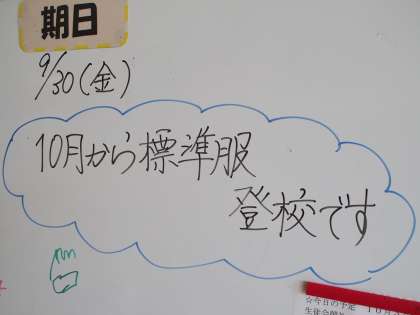 期日
9/30(金)
10月から標準服
登校です
☆今日の予定